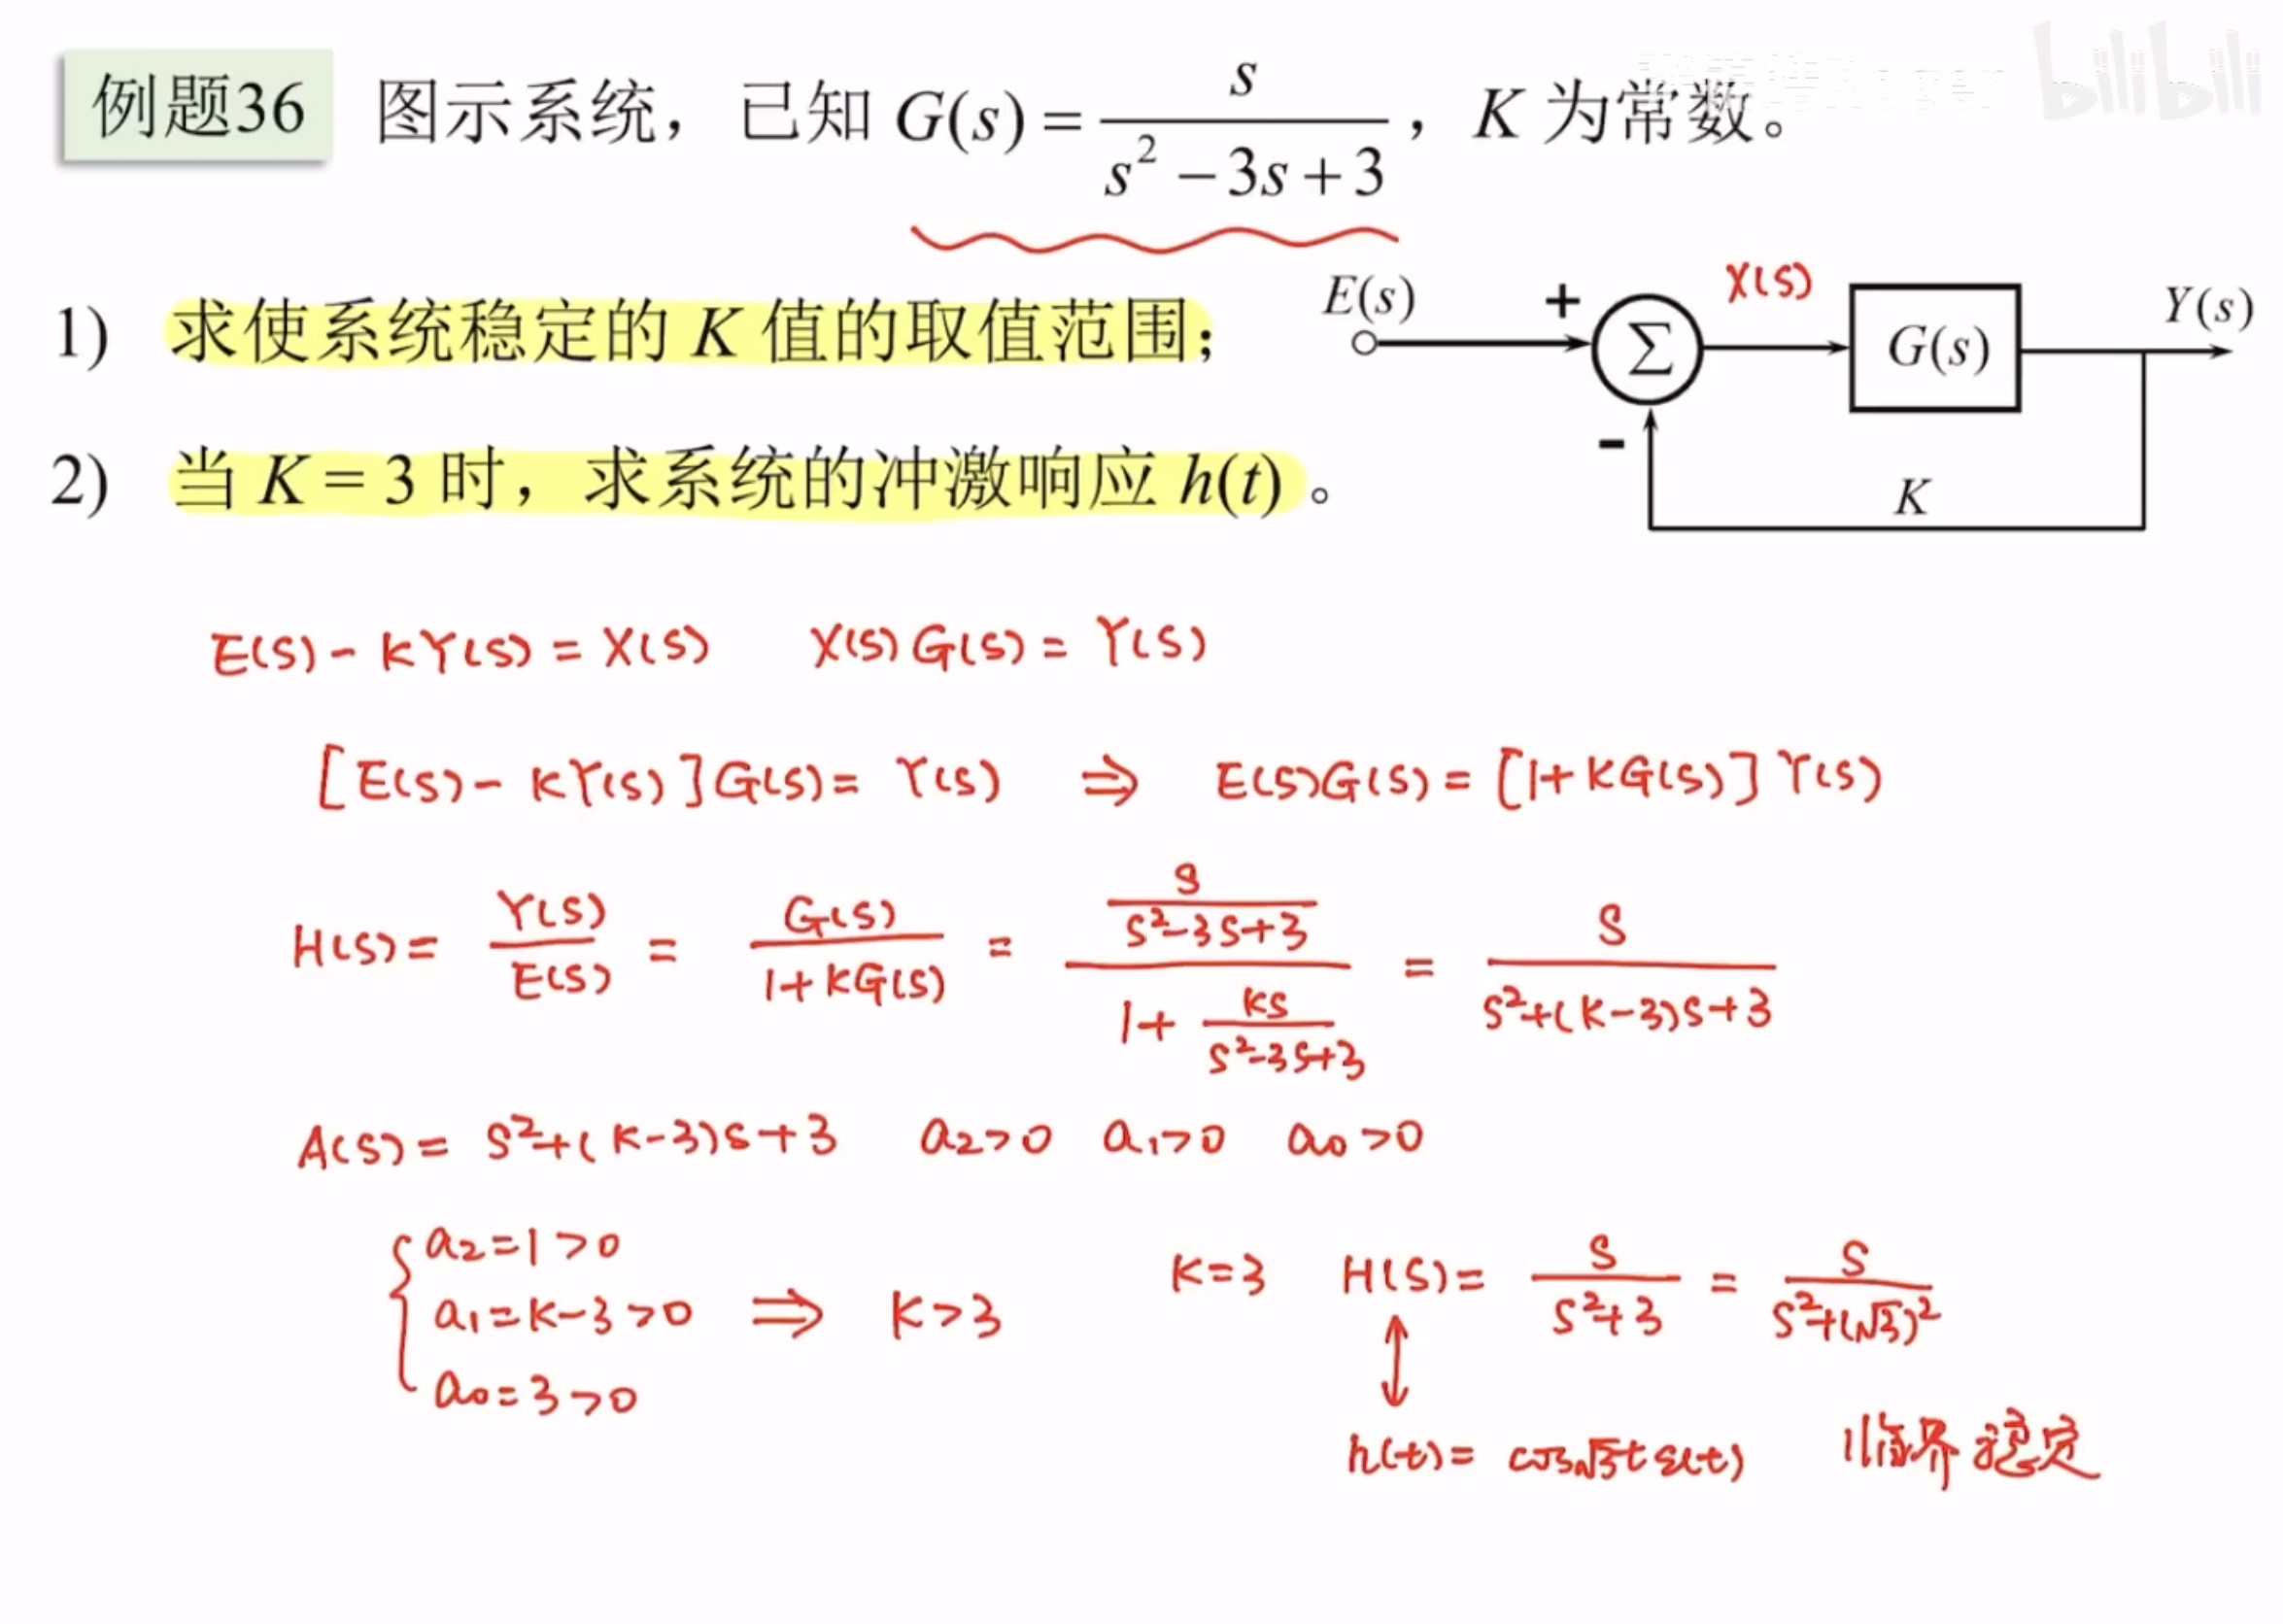 例题36 图示系统，已知 G(s) = s / (s² − 3s + 3)，K 为常数。
bilibili
1) 求使系统稳定的 K 值的取值范围；
2) 当 K = 3 时，求系统的冲激响应 h(t) 。
E(s) + Σ X(s) G(s) Y(s)
-
K
E(s) - KY(s) = X(s) X(s)G(s) = Y(s)
[E(s) - KY(s)]G(s) = Y(s) ⇒ E(s)G(s) = [1+KG(s)]Y(s)
H(s) = Y(s)/E(s) = G(s)/(1+KG(s)) = (s/(s²-3s+3))/(1+Ks/(s²-3s+3)) = s/(s²+(K-3)s+3)
A(s) = s²+(K-3)s+3 a₂>0 a₁>0 a₀>0
a₂=1>0
a₁=K-3>0 ⇒ K>3
a₀=3>0
K=3 H(s) = s/(s²+3) = s/(s²+(√3)²)
↕
h(t) = cos√3t ε(t) 临界稳定